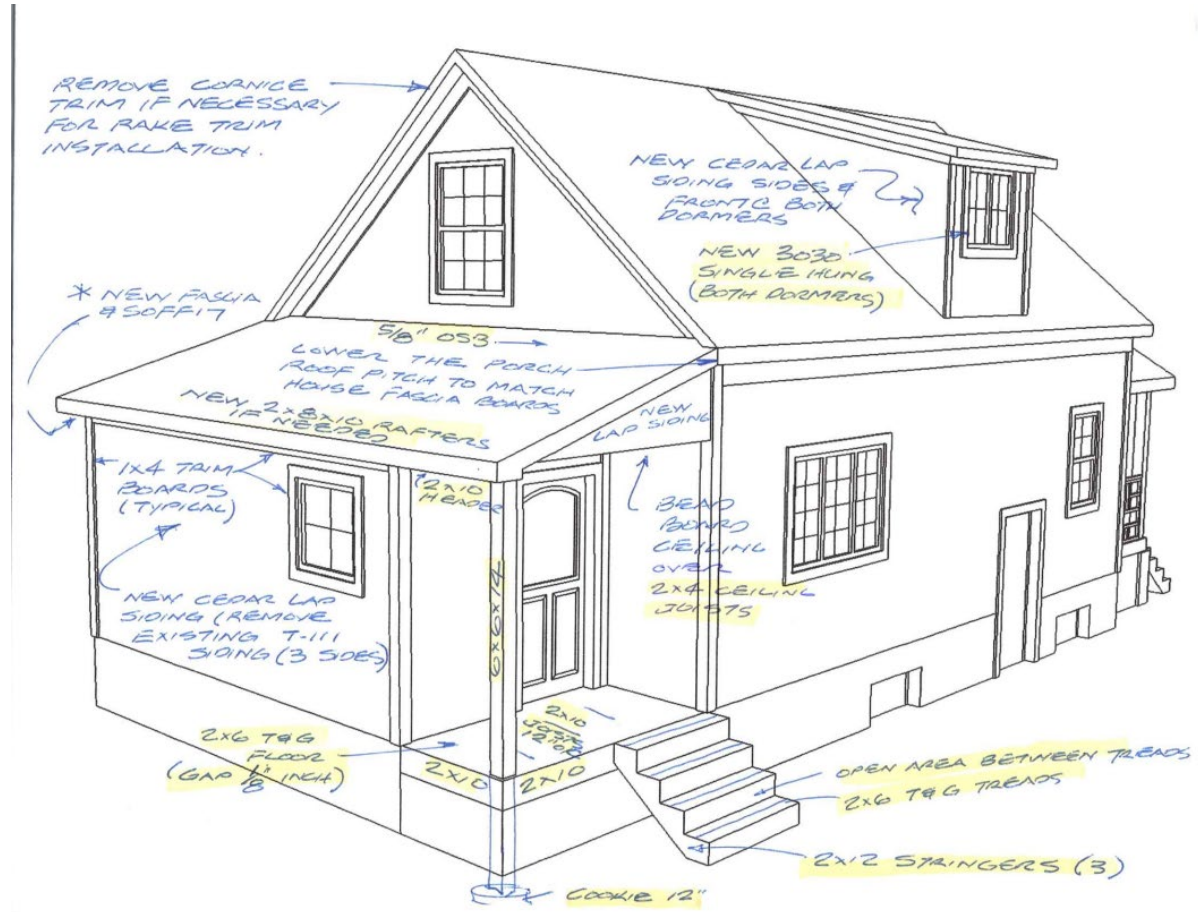 REMOVE CORNICE
TRIM IF NECESSARY
FOR RAKE TRIM
INSTALLATION.
NEW CEDAR LAP
SIDING SIDES &
FRONT @ BOTH
DORMERS
NEW 3030
SINGLE HUNG
(BOTH DORMERS)
* NEW FASCIA
& SOFFIT
5/8" OSB
LOWER THE PORCH
ROOF PITCH TO MATCH
HOUSE FASCIA BOARDS
NEW 2x8x10 RAFTERS
IF NEEDED
NEW
LAP SIDING
1x4 TRIM
BOARDS
(TYPICAL)
2x10
HEADER
BEAD
BOARD
CEILING
OVER
2x4 CEILING
JOISTS
6x6x14
NEW CEDAR LAP
SIDING (REMOVE
EXISTING T-111
SIDING (3 SIDES)
2x10
JOISTS
12" OC
2x6 T&G
FLOOR
(GAP 1/8" INCH)
2x10
2x10
OPEN AREA BETWEEN TREADS
2x6 T&G TREADS
2x12 STRINGERS (3)
COOKIE 12"